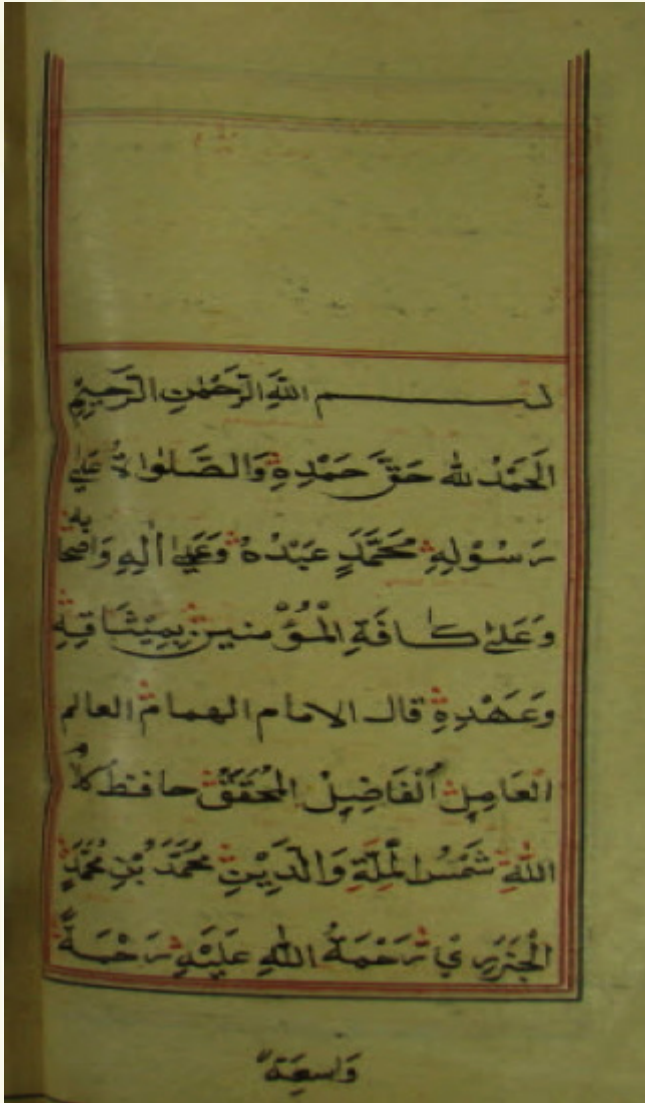 بسم اللهِ الرَّحْمٰنِ الرَّحِيْمِ
اَلْحَمْدُ لله حَقَّ حَمْدِهِ وَالصَّلٰوةُ عَلٰي
رَسُوْلِهِ مُحَمَّدٍ عَبْدُهُ وَعَلٰي اٰلِهِ وَاَصْحَابِهِ
وَعَلٰي كَافَّةِ الْمُؤْمِنِينَ بِمِيْثَاقِهِ
وَعَهْدِهِ قال الامام الهمام العالم
العَامِلِ الْفَاضِلِ المُحَقِّقُ حافظ كلام
اللهِ شَمْسُ الْمِلَّةِ وَالدِّيْنِ مُحَمَّدُ بْنِ مُحَمَّدٍ
الْجَزَرِي رَحْمَةُ اللهِ عَلَيْهِ رَحْمَةً
وَاسِعَةً